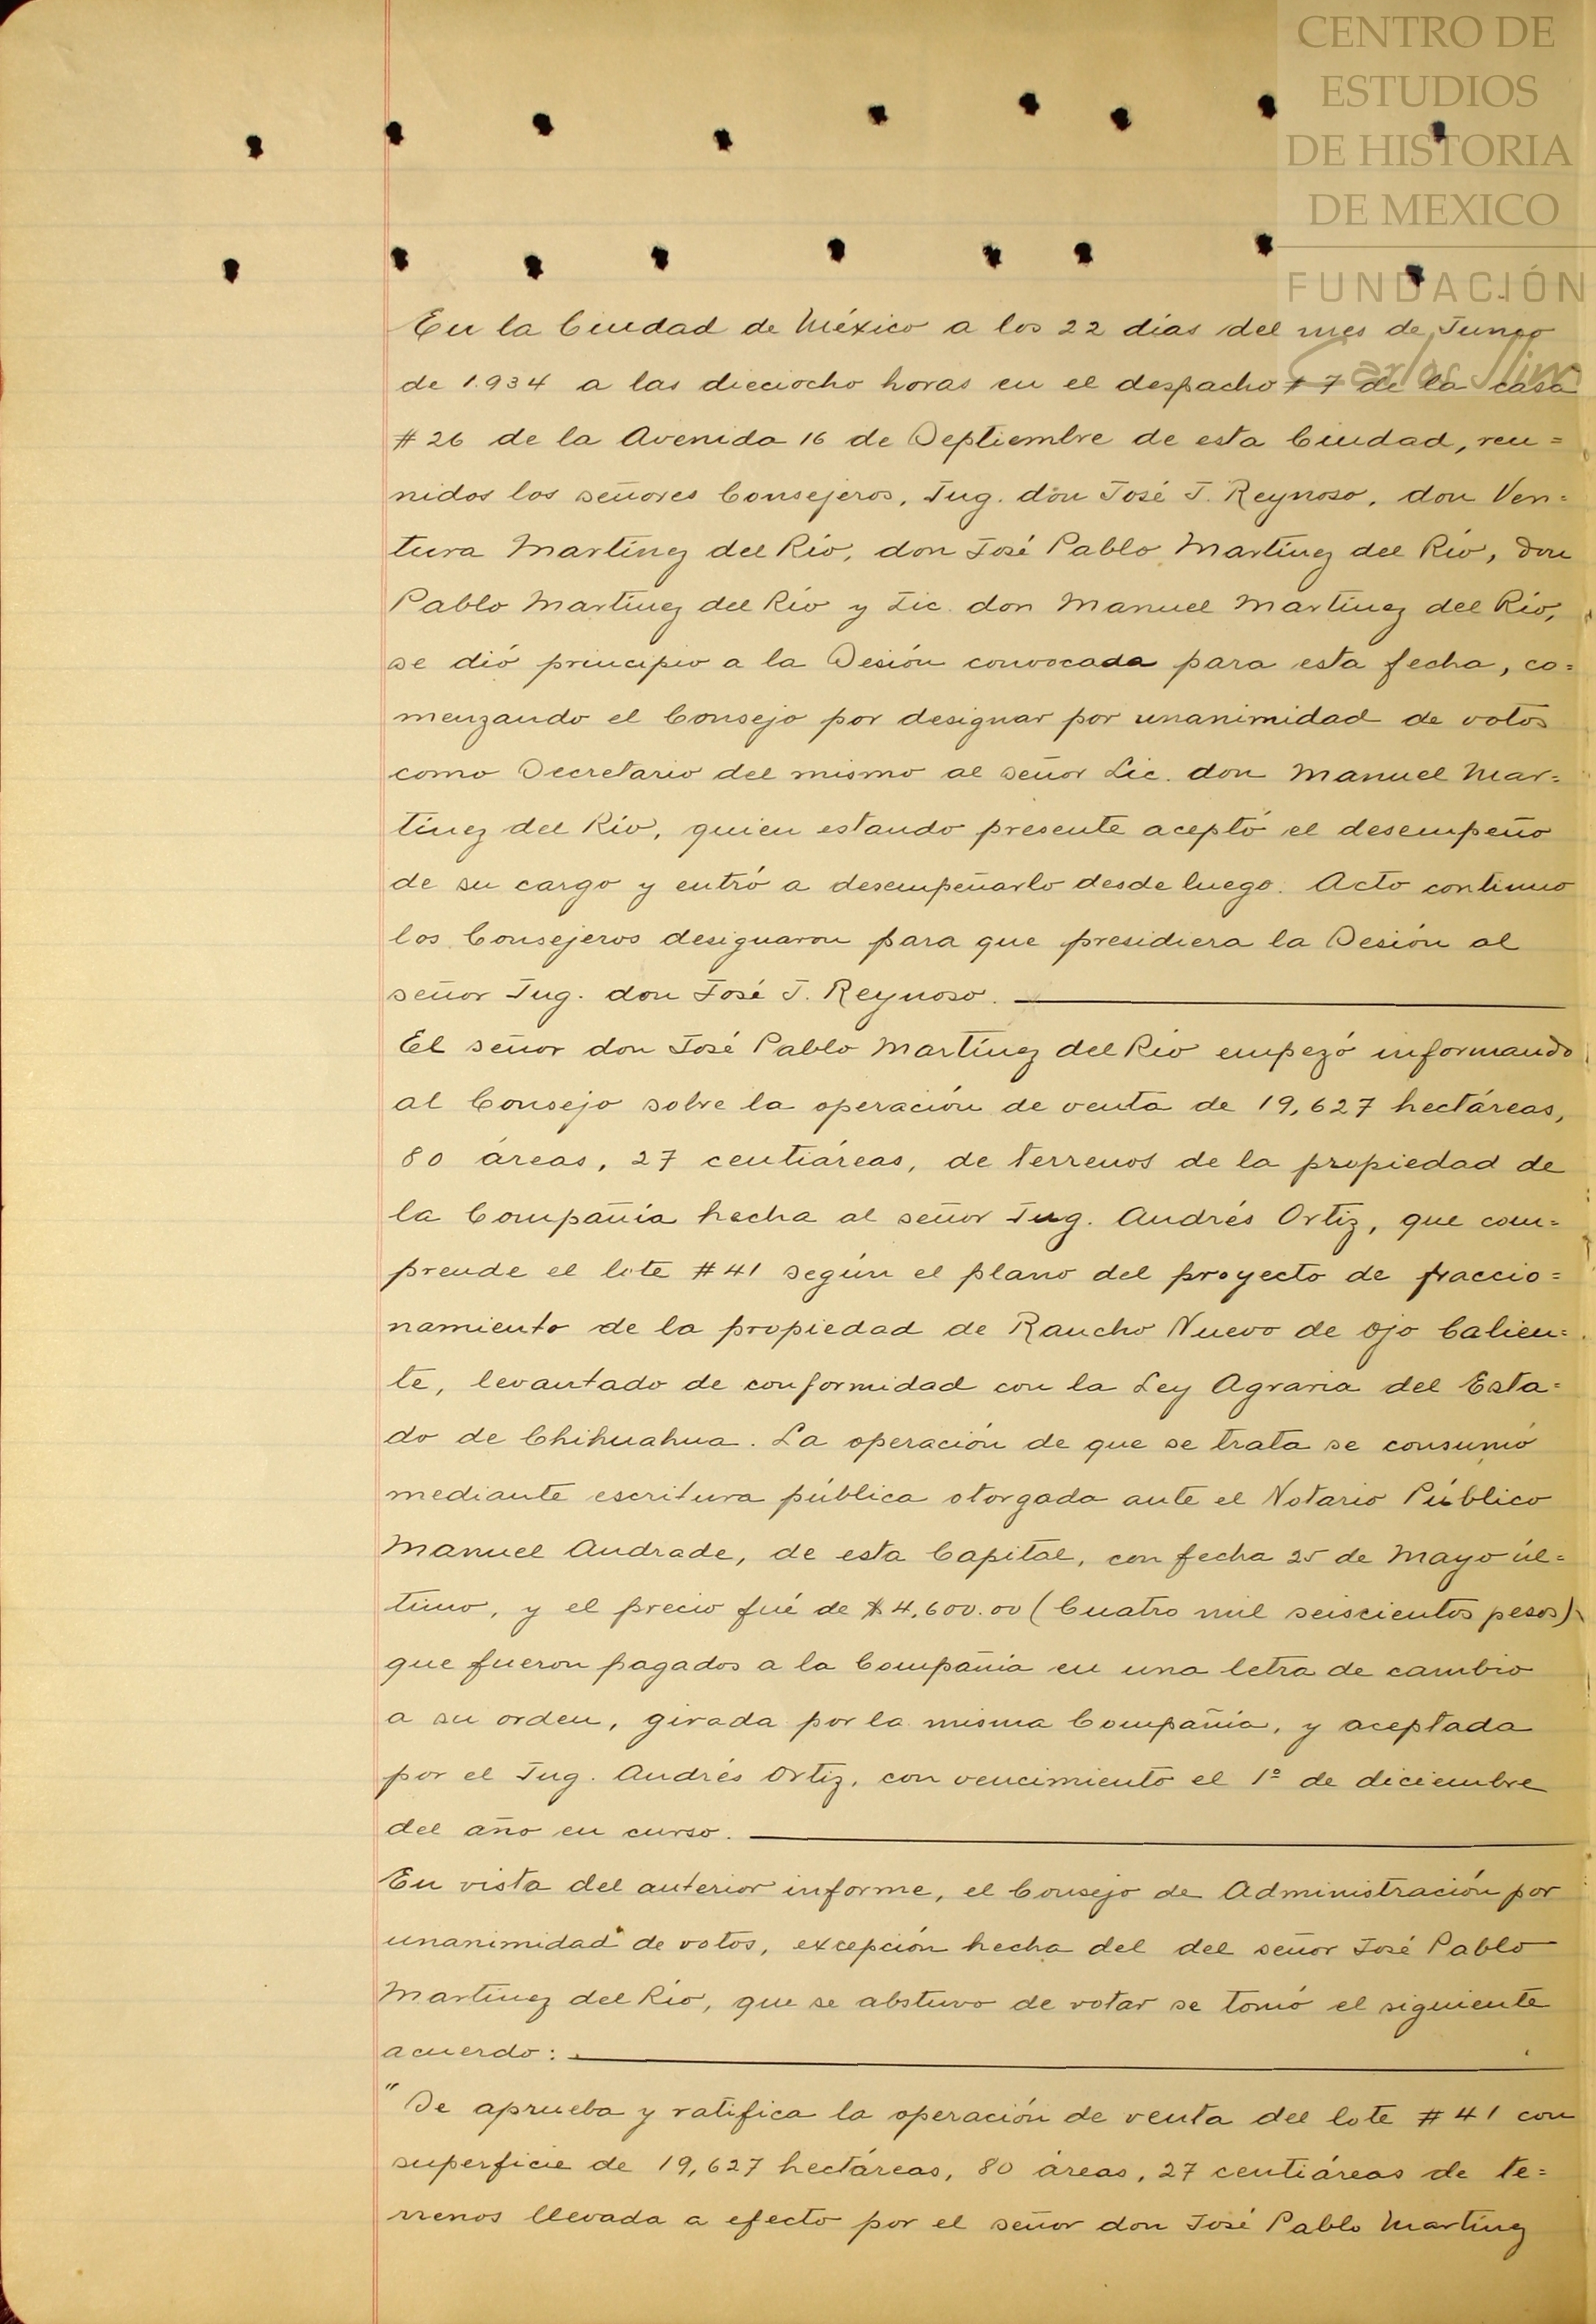 CENTRO DE
ESTUDIOS
DE HISTORIA
DE MEXICO
FUNDACIÓN
Carlos Slim
En la Ciudad de México a los 22 días del mes de Junio
de 1.934 a las dieciocho horas en el despacho # 7 de la casa
# 26 de la Avenida 16 de Septiembre de esta Ciudad, reu=
nidos los señores Consejeros, Ing. don José J. Reynoso, don Ven=
tura Martínez del Río, don José Pablo Martínez del Río, don
Pablo Martínez del Río y Lic. don Manuel Martínez del Río,
se dió principio a la Sesión convocada para esta fecha, co=
menzando el Consejo por designar por unanimidad de votos
como Secretario del mismo al señor Lic. don Manuel Mar=
tínez del Río, quien estando presente aceptó el desempeño
de su cargo y entró a desempeñarlo desde luego. Acto continuo
los Consejeros designaron para que presidiera la Sesión al
señor Ing. don José J. Reynoso.
El señor don José Pablo Martínez del Río empezó informando
al Consejo sobre la operación de venta de 19,627 hectáreas,
80 áreas, 27 centiáreas, de terrenos de la propiedad de
la Compañía hecha al señor Ing. Andrés Ortiz, que com=
prende el lote # 41 según el plano del proyecto de fraccio=
namiento de la propiedad de Rancho Nuevo de Ojo Calien=
te, levantado de conformidad con la Ley Agraria del Esta=
do de Chihuahua. La operación de que se trata se consumó
mediante escritura pública otorgada ante el Notario Público
Manuel Andrade, de esta Capital, con fecha 25 de Mayo úl=
timo, y el precio fué de $4,600.00 (Cuatro mil seiscientos pesos)
que fueron pagados a la Compañía en una letra de cambio
a su orden, girada por la misma Compañía, y aceptada
por el Ing. Andrés Ortiz, con vencimiento el 1º de diciembre
del año en curso.
En vista del anterior informe, el Consejo de Administración por
unanimidad de votos, excepción hecha del del señor José Pablo
Martínez del Río, que se abstuvo de votar se tomó el siguiente
acuerdo:
"Se aprueba y ratifica la operación de venta del lote # 41 con
superficie de 19,627 hectáreas, 80 áreas, 27 centiáreas de te=
rrenos llevada a efecto por el señor don José Pablo Martínez